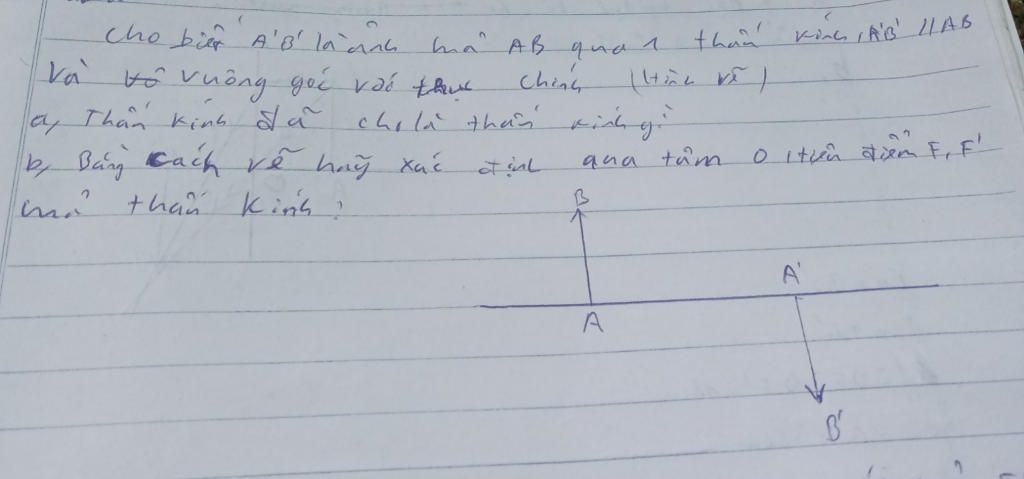 Cho biết A'B' là ảnh của AB qua 1 thấu kính, A'B' // AB
và vuông góc với trục chính (Hình vẽ)
a, Thấu kính đã cho là thấu kính gì
b, Bằng cách vẽ hãy xác định qua tâm O, tiêu điểm F, F'
của thấu kính?
B
A'
A
B'